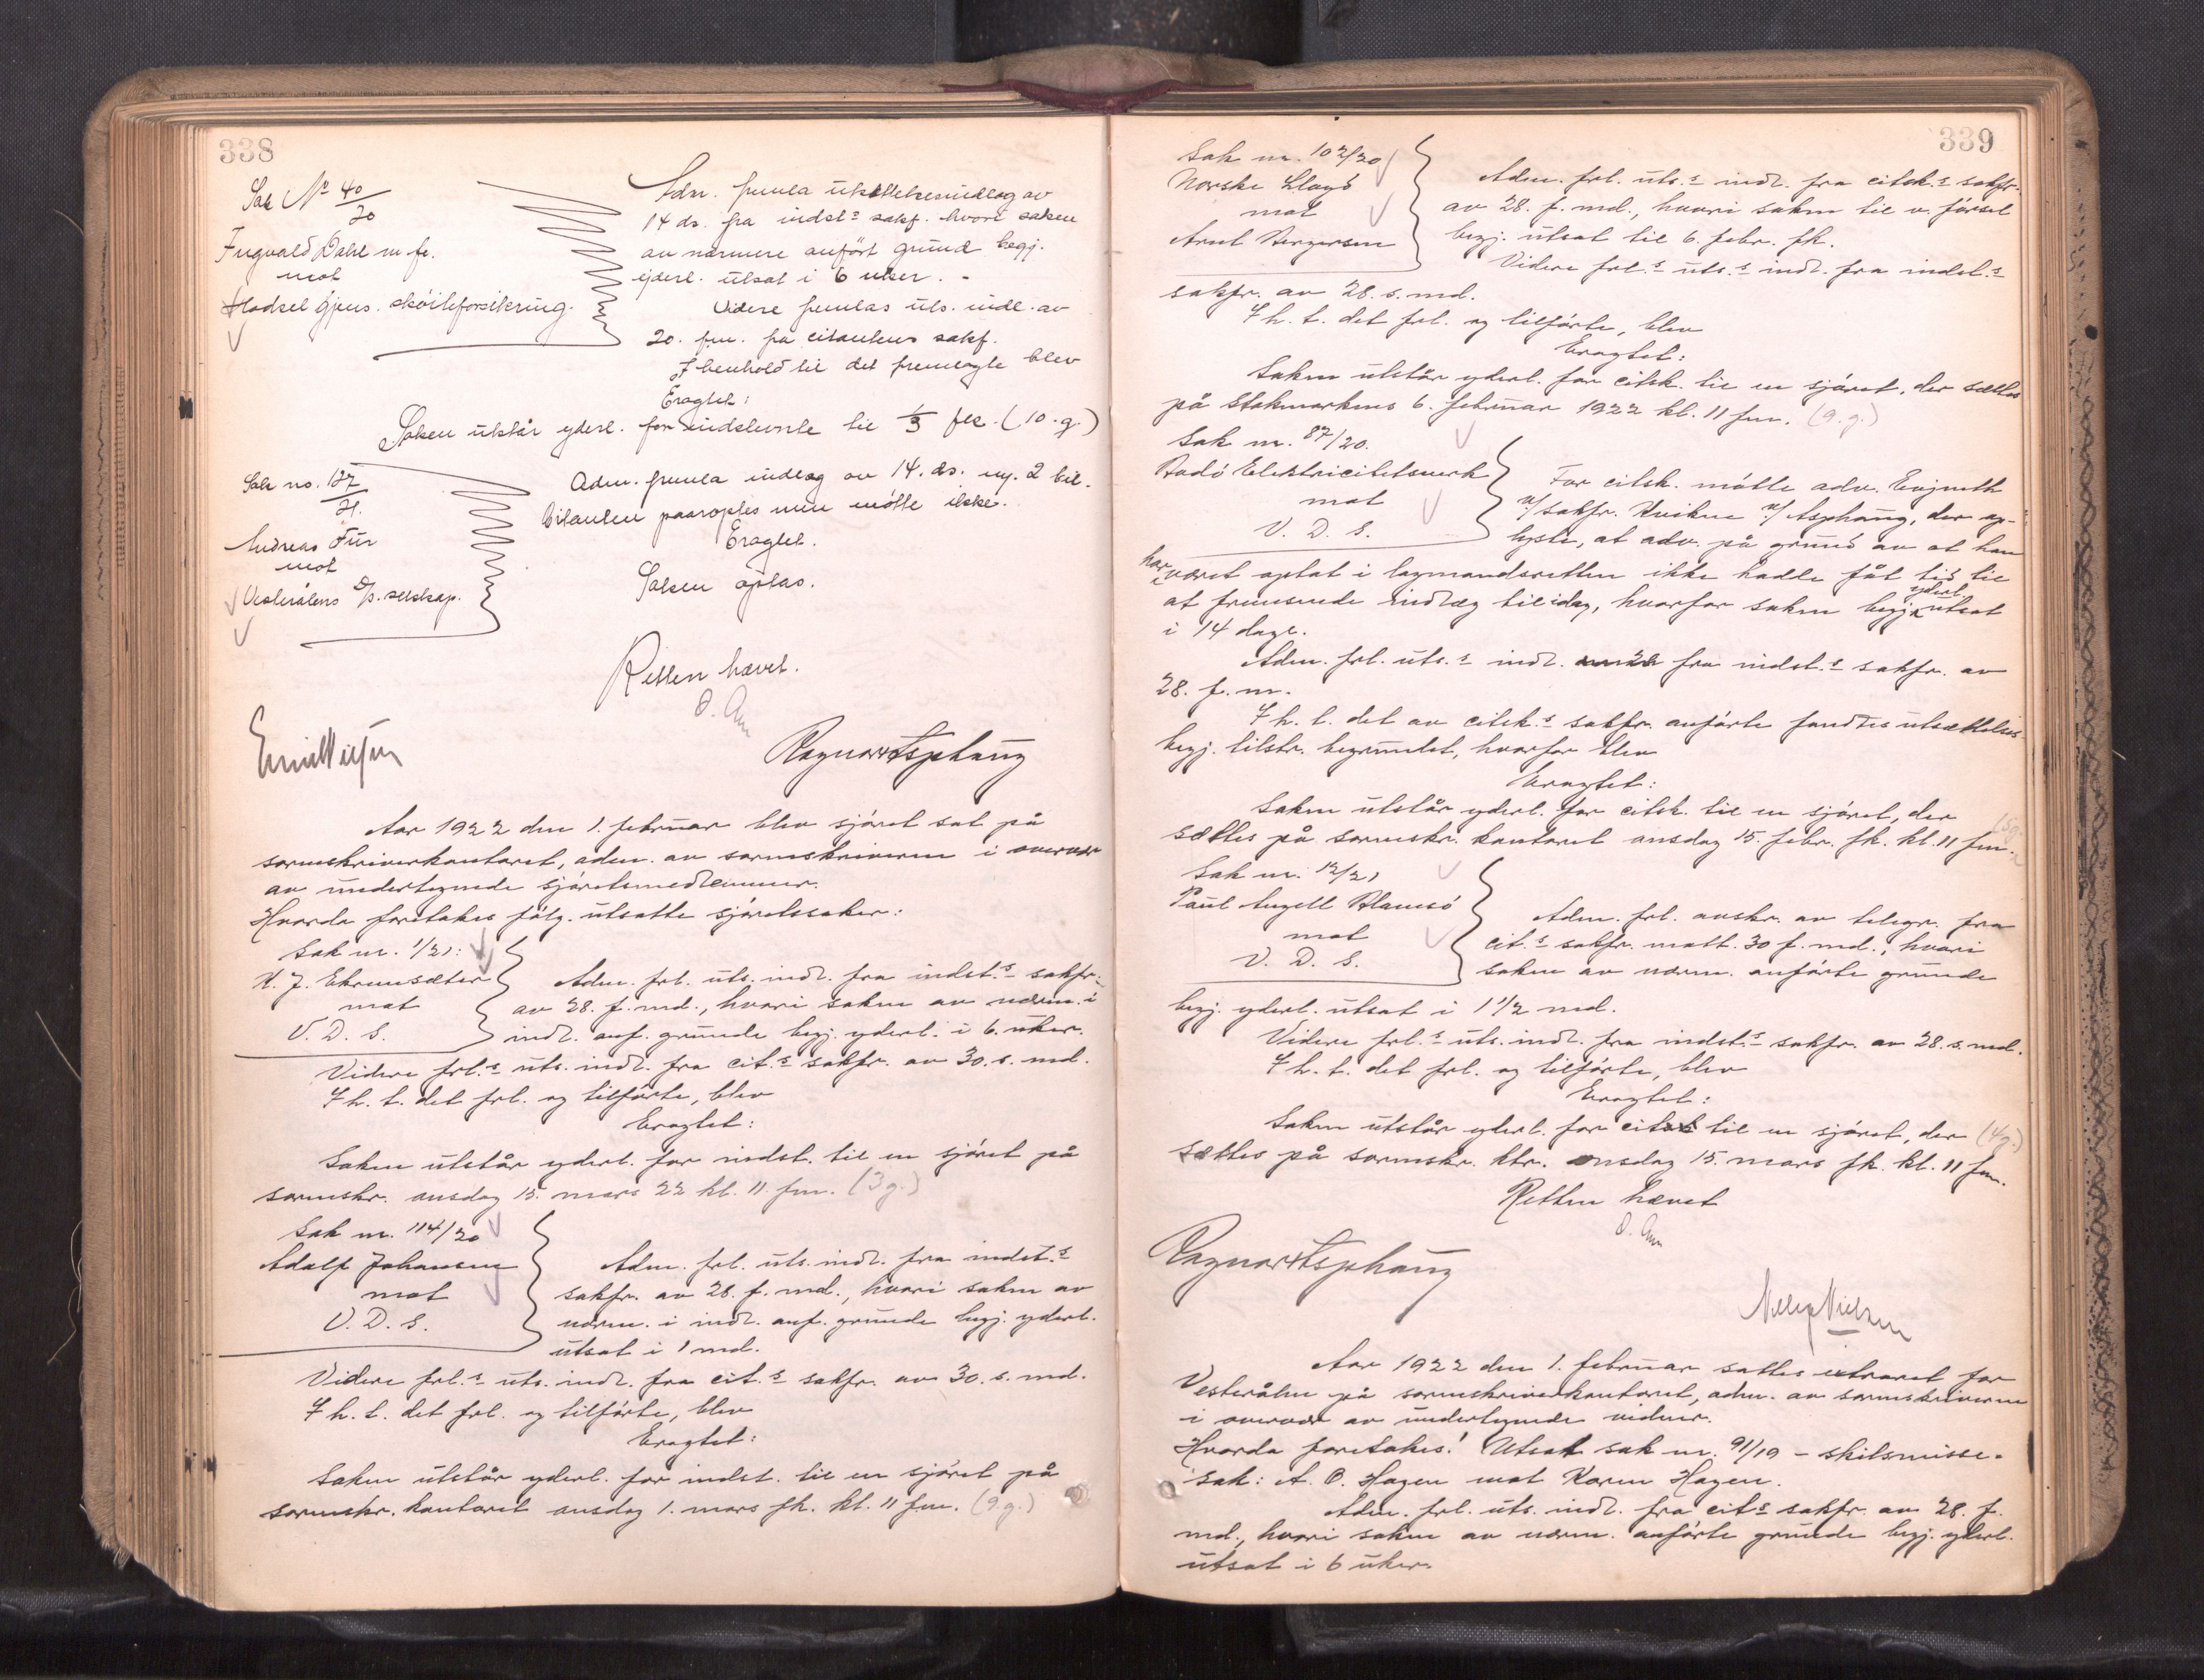 338
Sak No 40/20
Ingvald Dahl m. fl.
mot
Hadsel gjens. skøiteforsikring.
Adm. fremla utsættelsesindlæg av
14 ds. fra indst.s sakf. hvori saken
av nærmere anført grund begj.
yderl. utsat i 6 uker. -
Videre fremlas uts. indl. av
20. fm. fra citantens sakf.
I henhold til det fremlagte blev
Eragtet:
Saken utstår yderl. for indstevnte til 1/3 fk. (10. g.)
Sak no. 127/21.
Andreas Fur
mot
Vesterålens D/s. selskap.
Adm. fremla indlæg av 14. ds. m. 2 bil.
Citanten paaroptes men møtte ikke.
Eragtet.
Saken optas.
Retten hævet.
Emil Nielsen
Ragnar Asphaug
Aar 1922 den 1. februar blev sjøret sat på
sorenskriverkontoret, adm. av sorenskriveren i overvær
av undertegnede sjøretsmedlemmer.
Hvorda foretakes følg. utsatte sjøretssaker:
Sak nr. 1/21:
mot
V. D. S.
Adm. frl. uts. indl. fra indst.s sakfr.
av 28. f. md., hvori saken av nærm. i
indl. anf. grunde begj. yderl. i 6. uker.
Videre frl.s uts. indl. fra cit.s sakfr. av 30. s. md.
I h. t. det frl. og tilførte, blev
Eragtet:
Saken utstår yderl. for indst. til en sjøret på
sorenskr. onsdag 15. mars 22 kl. 11 fm. (3 g.)
Sak nr. 114/20
Adolf Johansen
mot
V. D. S.
Adm. frl. uts. indl. fra indst.s
sakfr. av 28. f. md., hvori saken av
nærm. i indl. anf. grunde begj. yderl.
utsat i 1 md.
Videre frl.s uts. indl. fra cit.s sakfr. av 30. s. md.
I h. t. det frl. og tilførte, blev
Eragtet:
Saken utstår yderl. for indst. til en sjøret på
sorenskr. kontoret onsdag 1. mars fk. kl. 11 fm. (9 g.)
339
Sak nr. 102/20
Norske Lloyd
mot
Arnt Bergersen
Adm. frl. uts.s indl. fra citsk.s sakfr.
av 28. f. md., hvori saken til v. førsel
begj. utsat til 6. febr. fk.
Videre frl.s uts.s indl. fra indst.s
sakfr. av 28. s. md.
I h. t. det frl. og tilførte, blev
Eragtet:
Saken utstår yderl. for citsk. til en sjøret, der sættes
på Stokmarknes 6. februar 1922 kl. 11 fm. (9. g.)
Sak nr. 87/20.
Bodø Elektricitetsverk
mot
V. D. S.
For citsk. møtte adv. Evjenth
v/ sakfr. Kvikne v/ Asphaug, der op-
lyste, at adv. på grund av at han
har været optat i lagmandsretten ikke hadde fåt tid til
at fremsende indlæg til idag, hvorfor saken begj. yderl. utsat
i 14 dage.
Adm. frl. uts.s indl. fra indst.s sakfr. av
28. f. m.
I h. t. det av citsk.s sakfr. anførte fandtes utsættelses-
begj. tilstr. begrundet, hvorfor blev
Eragtet:
Saken utstår yderl. for citsk. til en sjøret, der
sættes på sorenskr. kontoret onsdag 15. febr. fk. kl. 11 fm.
Sak nr. 12/21
Paul Angell Blamsø
mot
V. D. S.
Adm. frl. avskr. av telegr. fra
cit.s sakfr. mott. 30 f. md., hvori
saken av nærm. anførte grunde
begj. yderl. utsat i 1 1/2 md.
Videre frl.s uts. indl. fra indst.s sakfr. av 28. s. md.
I h. t. det frl. og tilførte, blev
Eragtet:
Saken utstår yderl. for citsk til en sjøret, der (4 g.)
sættes på sorenskr. ktr. onsdag 15. mars fk. kl. 11 fm.
Retten hævet
Ragnar Asphaug
Nielsen
Aar 1922 den 1. februar sattes extraret for
Vesterålen på sorenskriverkontoret, adm. av sorenskriveren
i overvær av undertegnede vidner.
Hvorda foretakes: Utsat sak nr. 91/19 - skilsmisse-
sak: A. O. Hagen mot Karen Hagen.
Adm. frl. uts. indl. fra cits sakfr. av 28. f.
md., hvori saken av nærm. anførte grunde begj. yderl.
utsat i 6 uker.